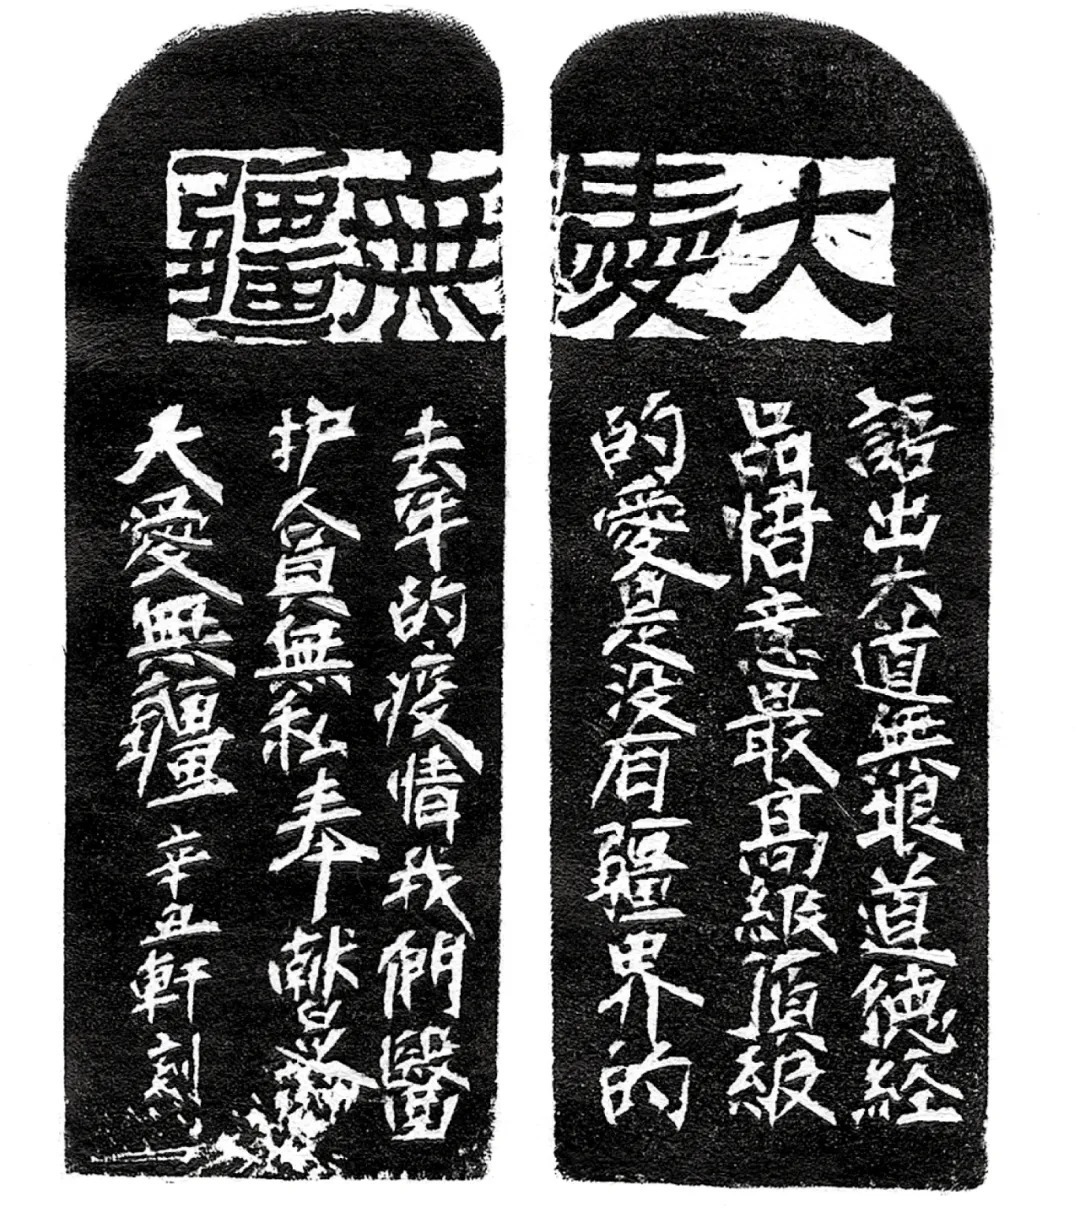 大愛無疆
語出大道無垠道德經
品悟意最高級頂級
的愛是没有疆界的
去年的疫情我們醫
护人員無私奉獻
大愛無疆 辛丑軒刻